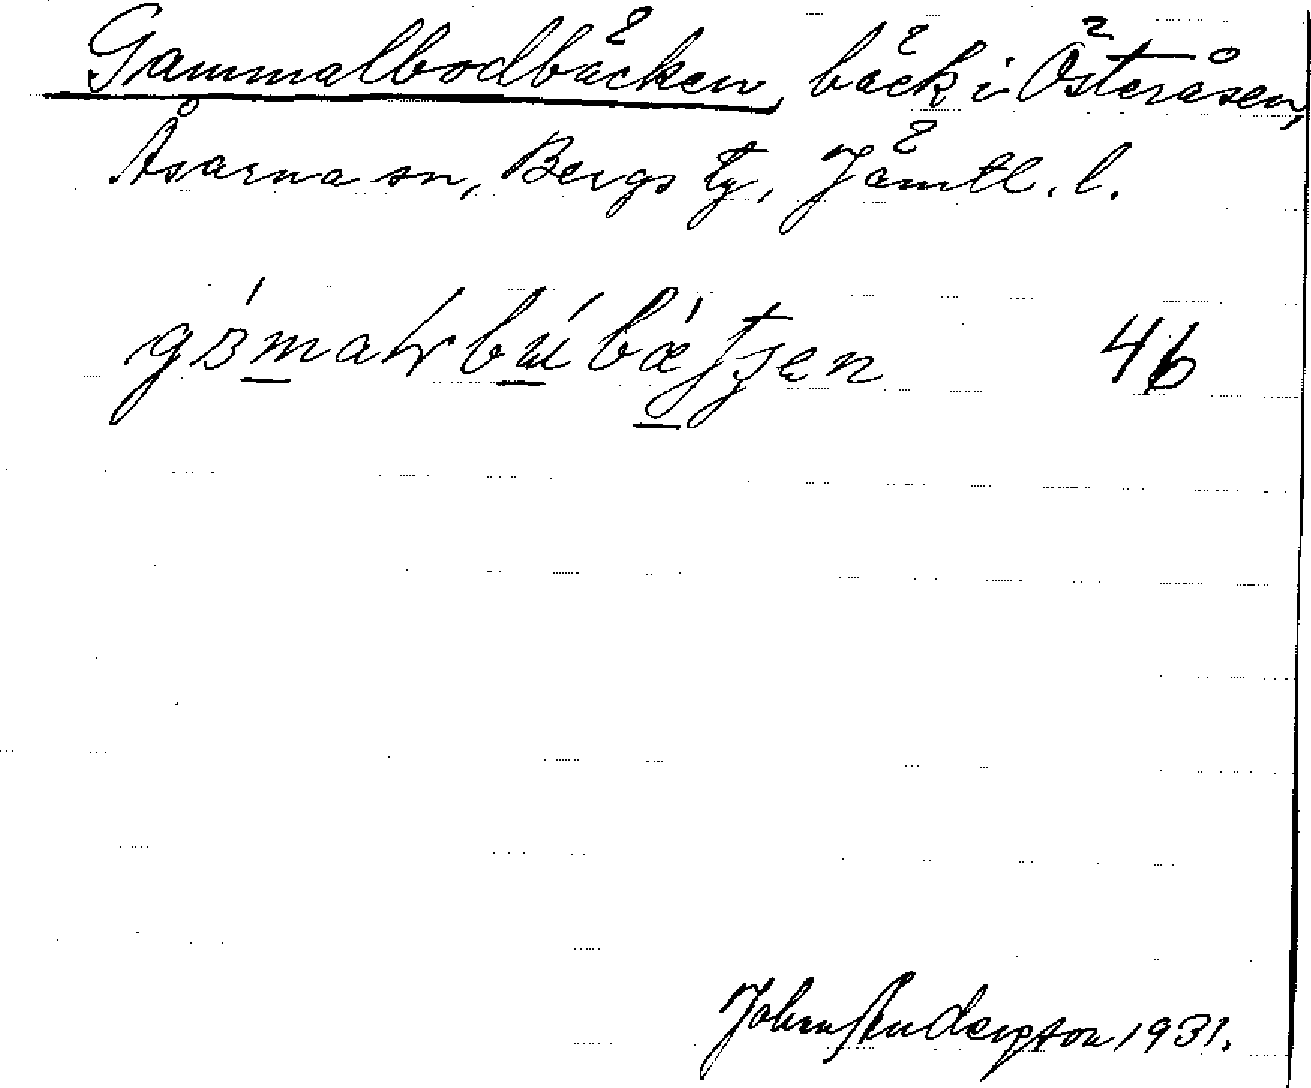 Gammalbodbäcken, bäck i Österåsen,
Åsarna sn, Bergs tg, Jämtl. l.
46
John Andersson 1931.